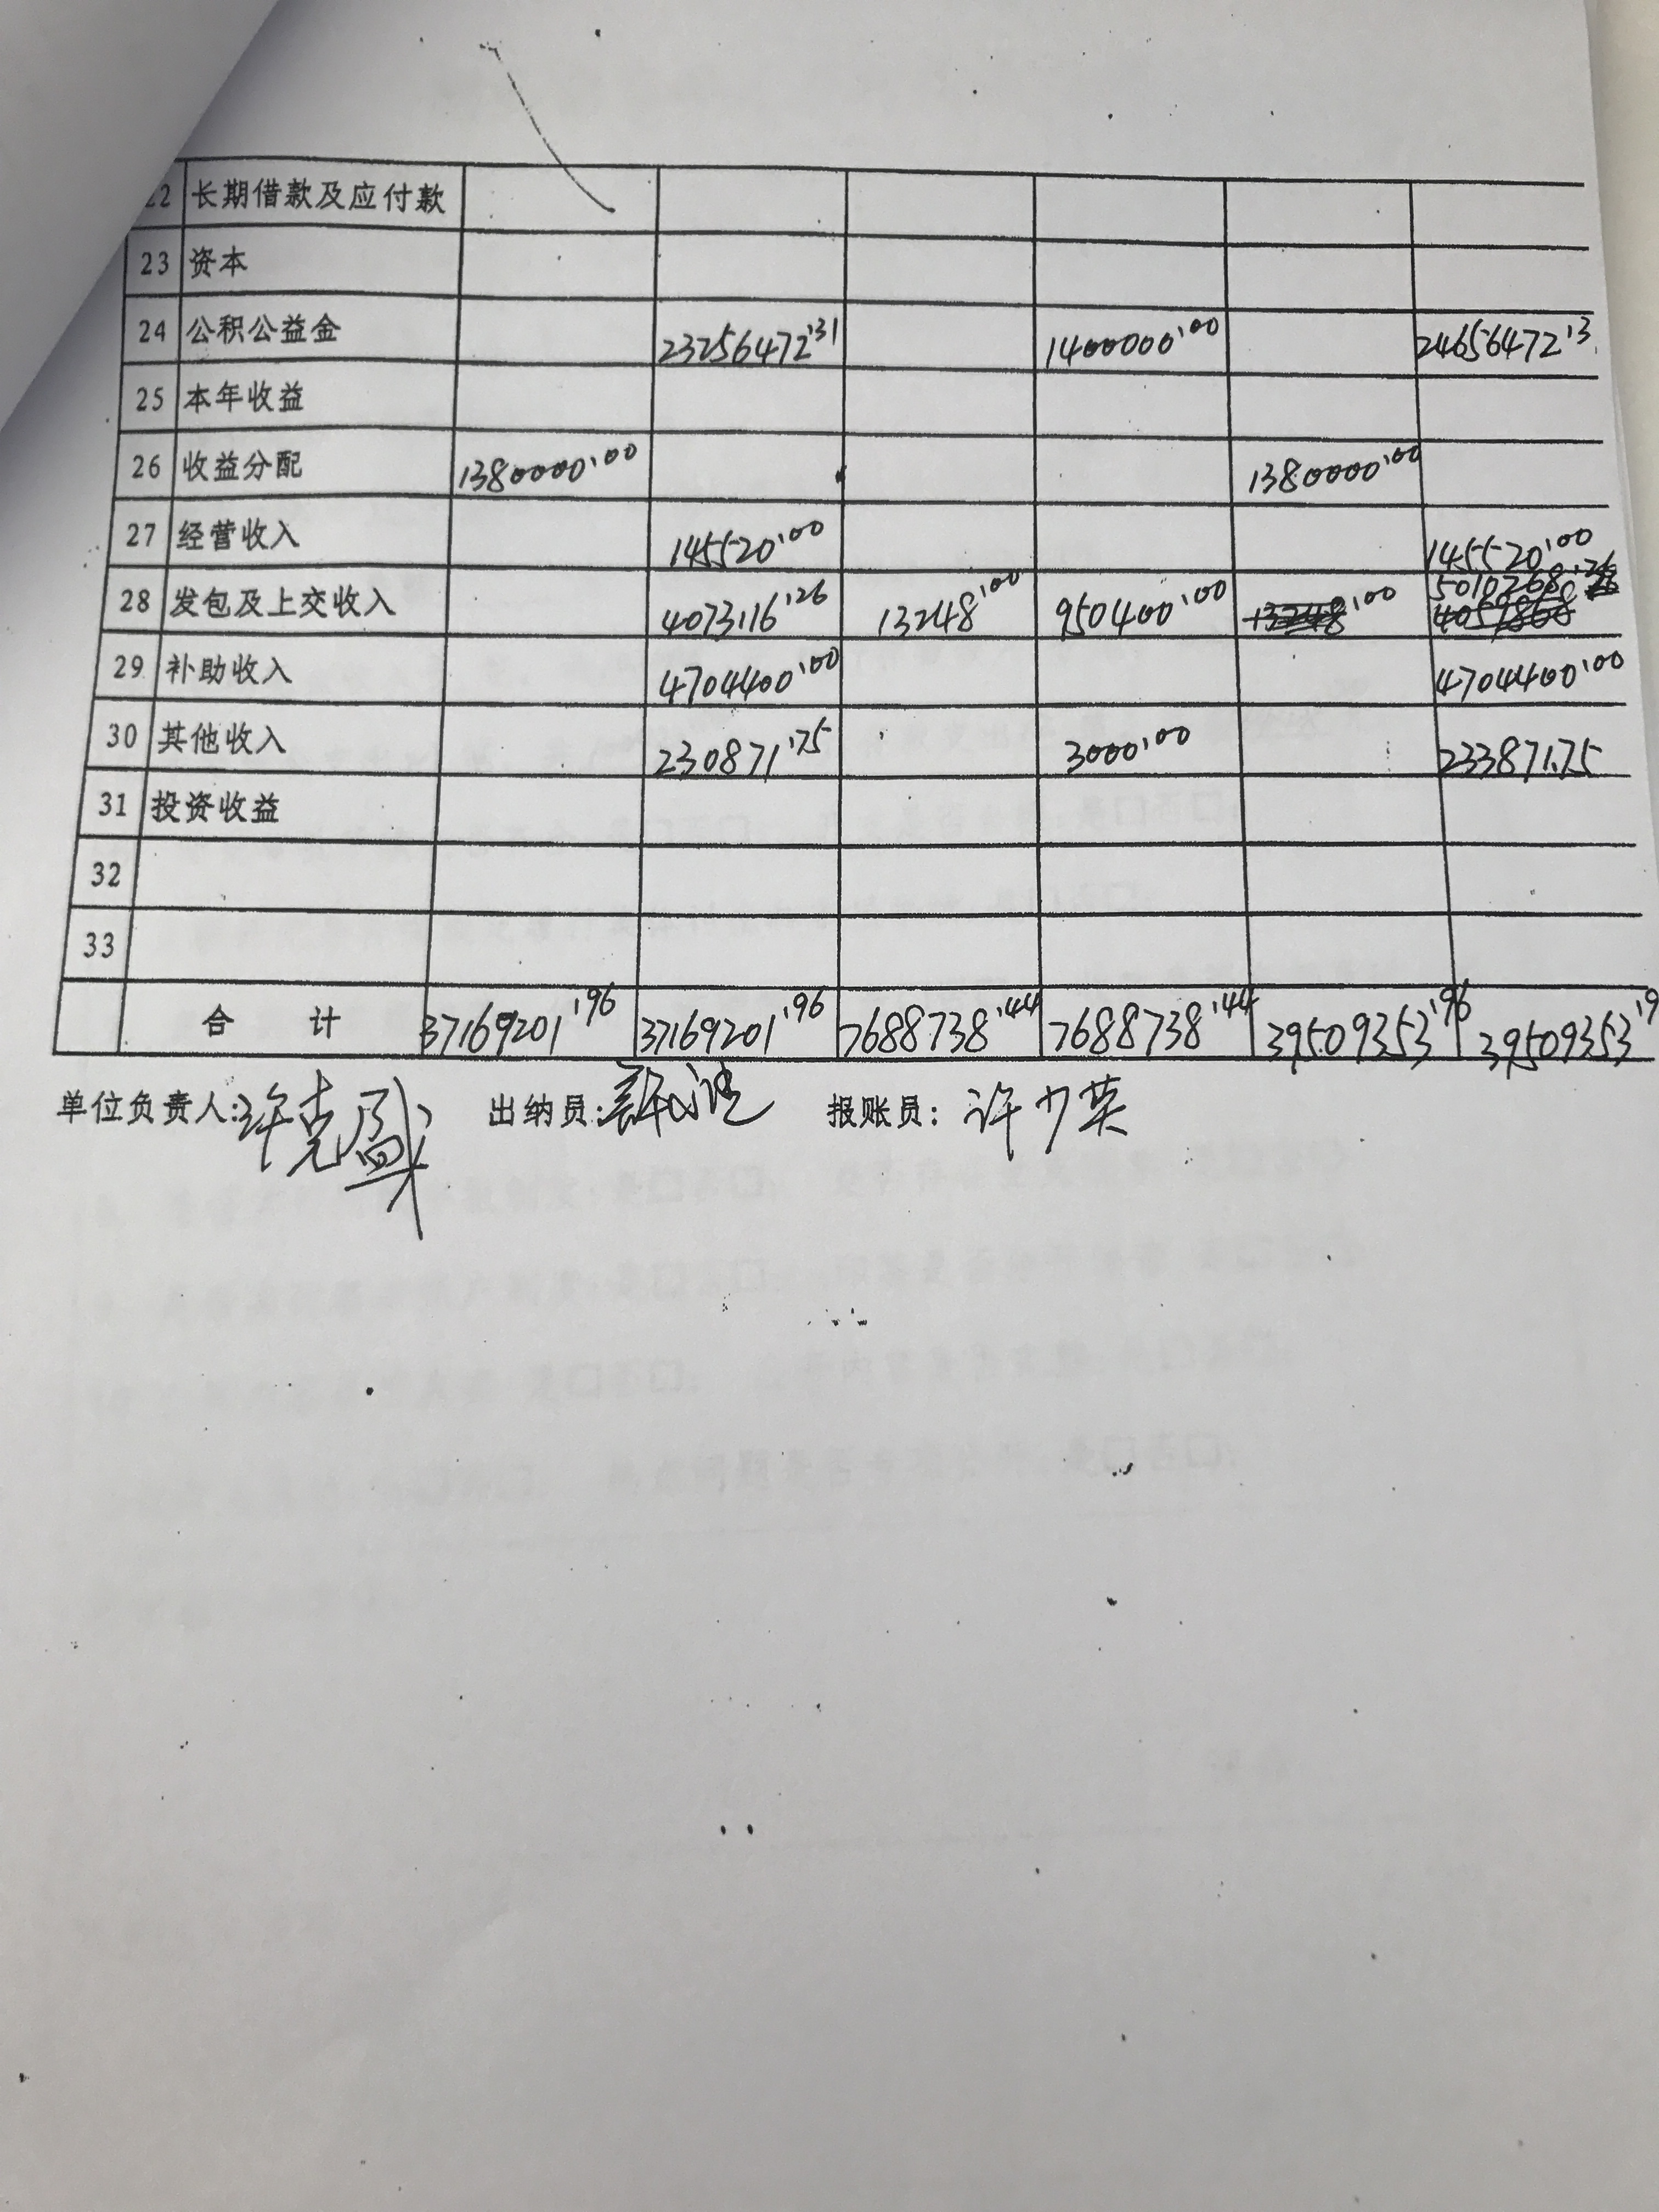 22 长期借款及应付款
23 资本
24 公积公益金 23256472.31 1400000.00 24656472.3
25 本年收益
26 收益分配 1380000.00 1380000.00
27 经营收入 145520.00 145520.00
28 发包及上交收入 4073116.26 13248.00 950400.00 13248.00 5010268.26 4059868
29 补助收入 4704400.00 4704400.00
30 其他收入 230871.75 3000.00 233871.75
31 投资收益
32
33
合 计 37169201.96 37169201.96 7688738.44 7688738.44 39509353.96 39509353.9
单位负责人:许克盛 出纳员: 报账员:许少英